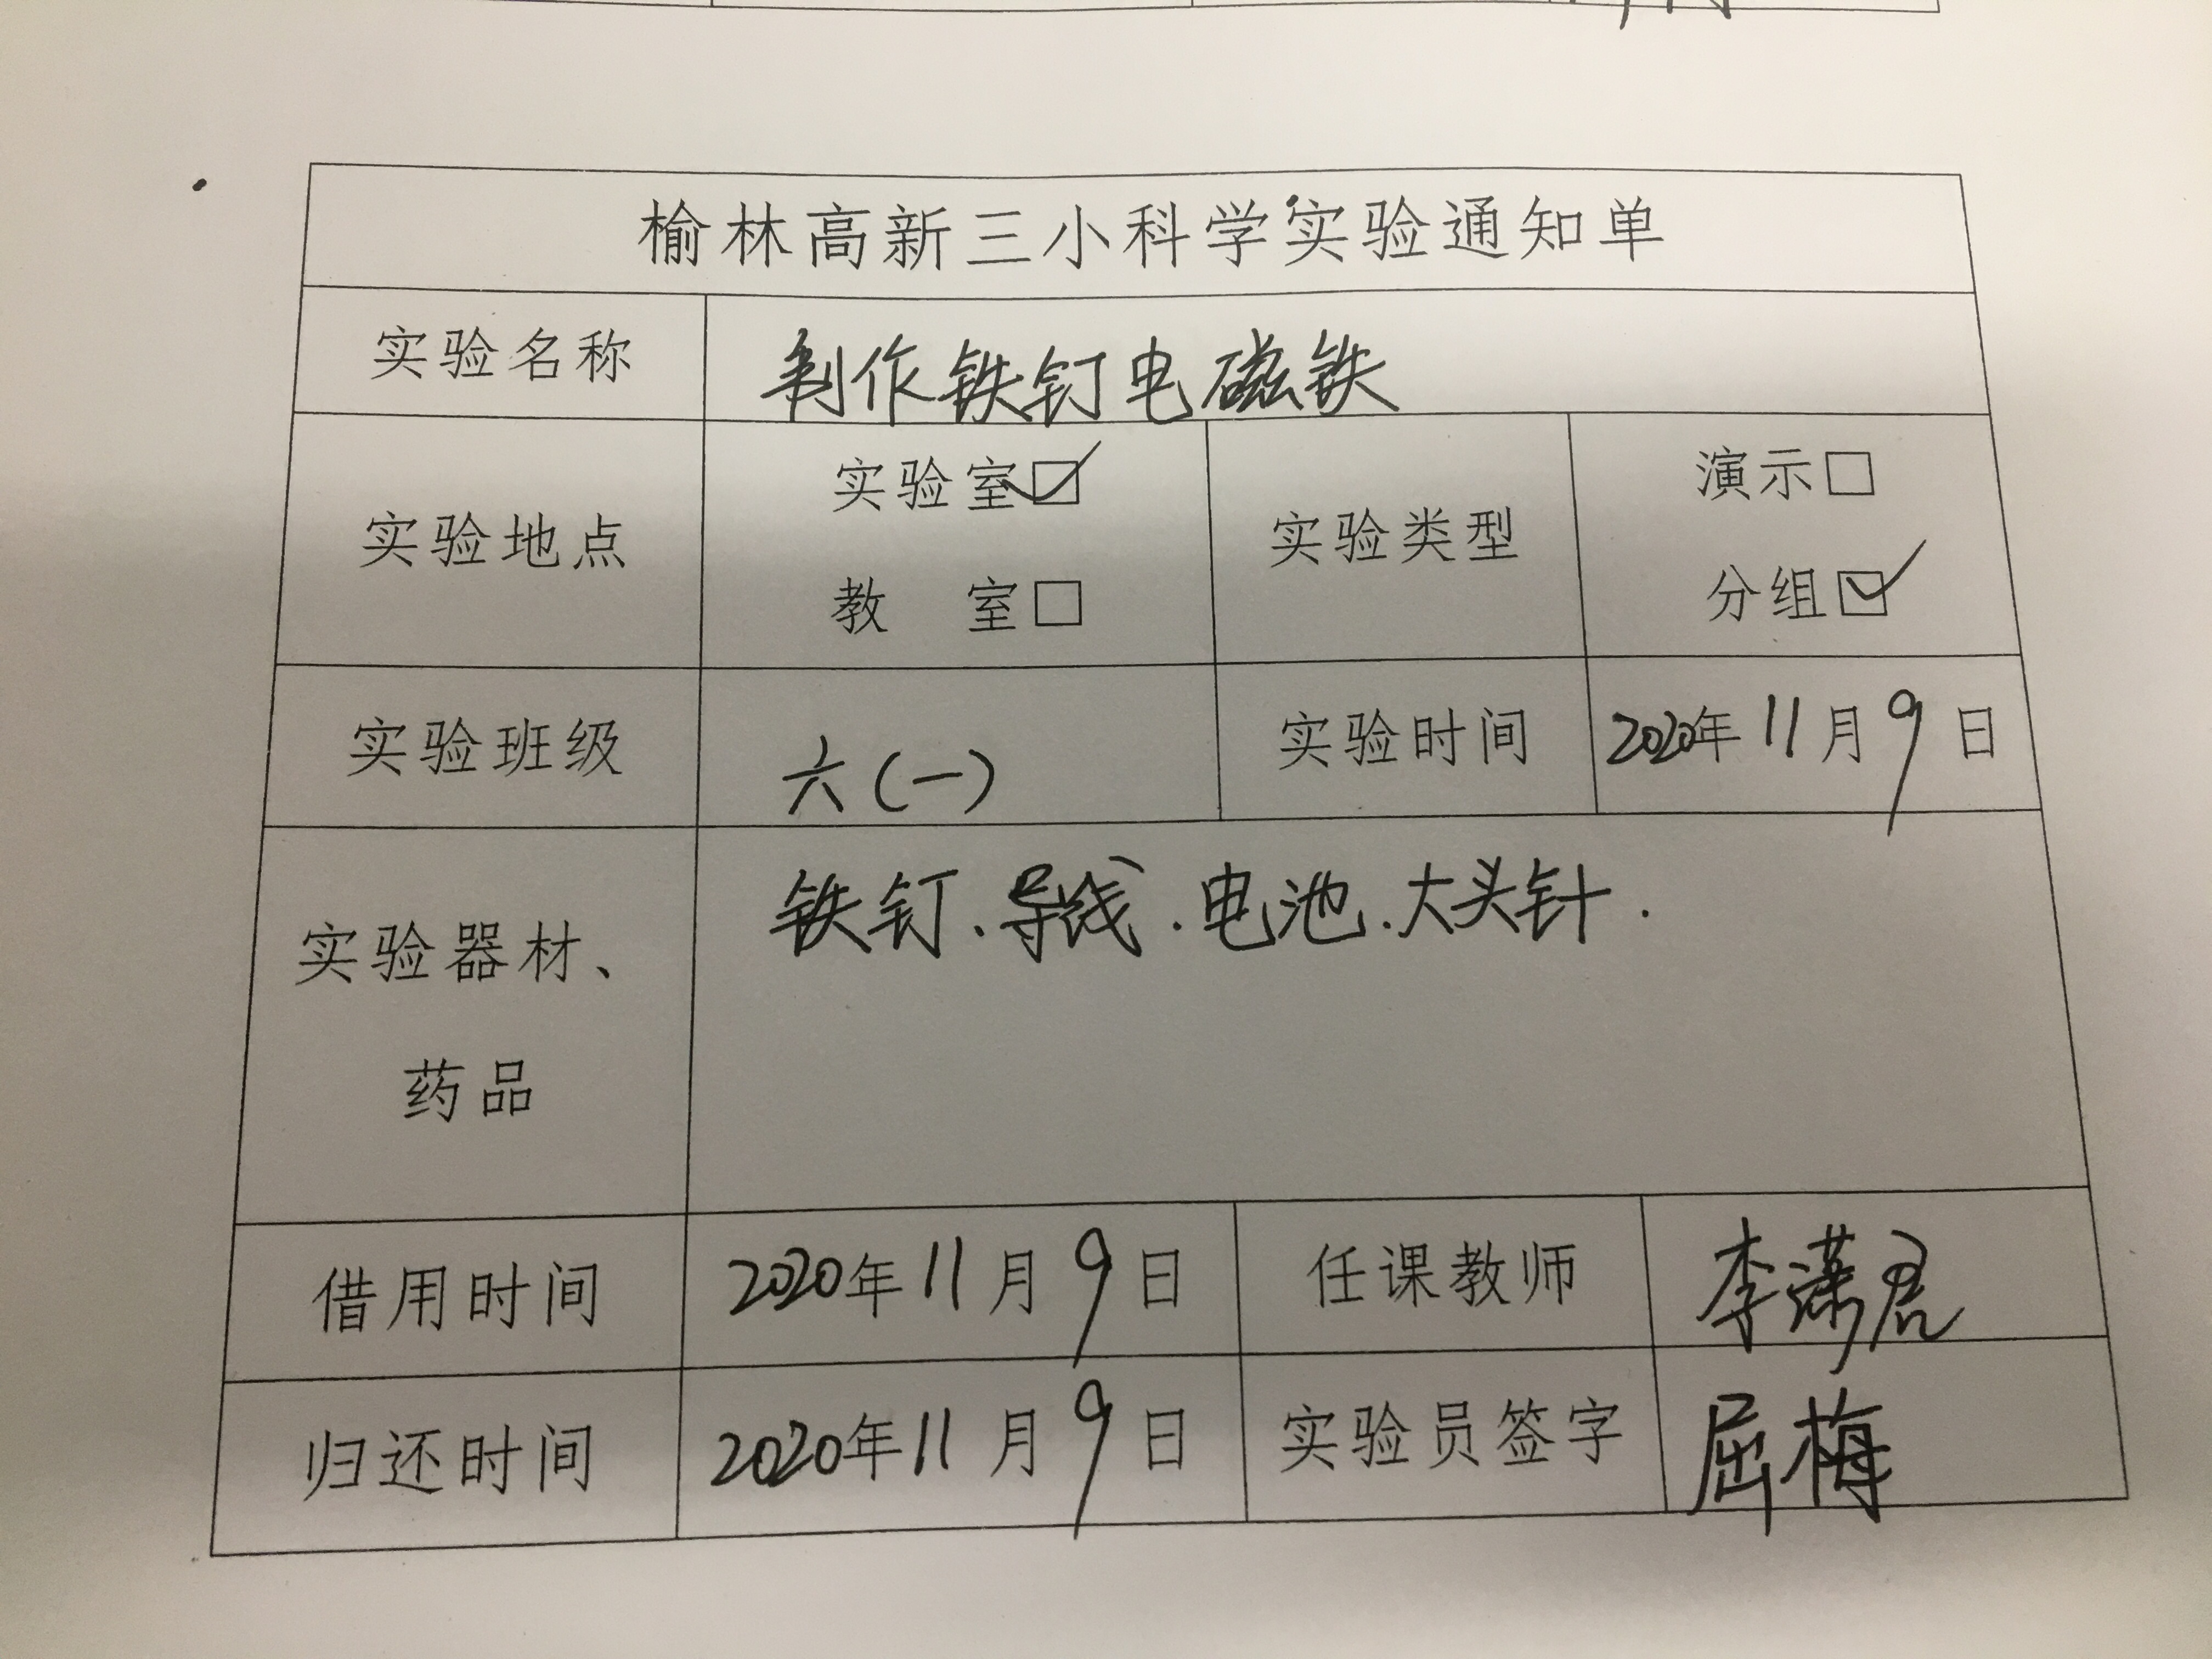 榆林高新三小科学实验通知单
实验名称 制作铁钉电磁铁
实验地点 实验室☑ 教 室□ 实验类型 演示□ 分组☑
实验班级 六(一) 实验时间 2020年11月9日
实验器材、药品 铁钉、导线.电池.大头针.
借用时间 2020年11月9日 任课教师 李潇君
归还时间 2020年11月9日 实验员签字 屈梅